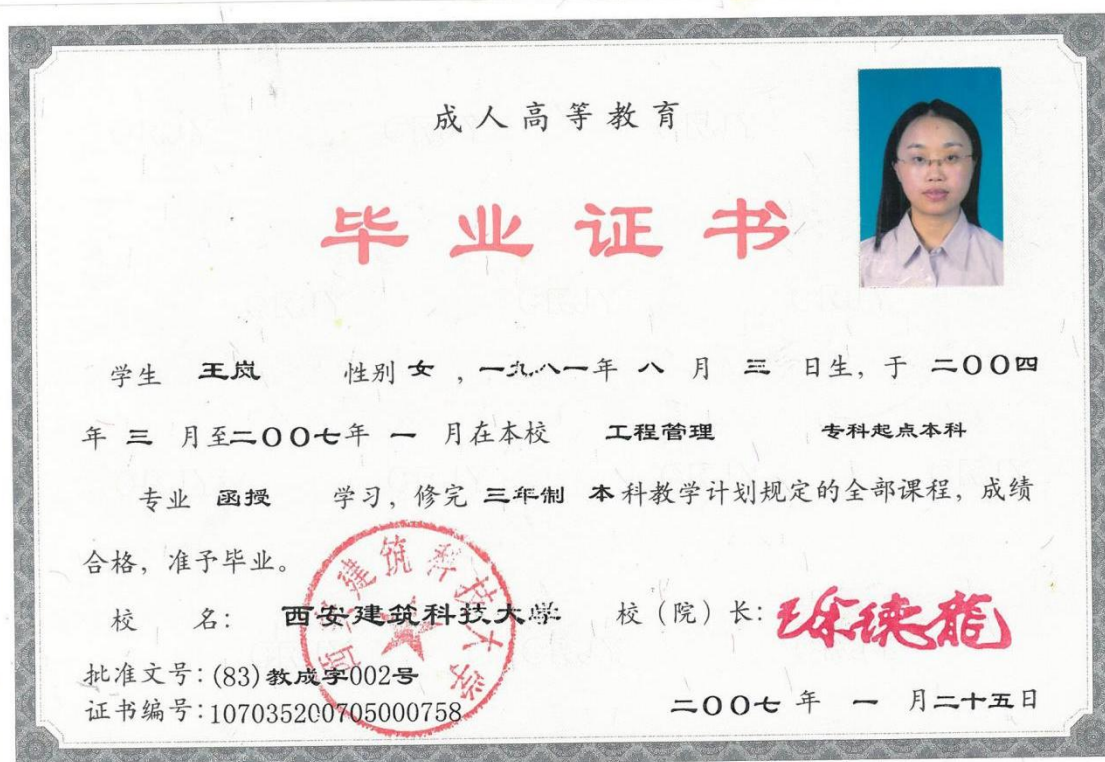 成人高等教育
毕业证书
学生 王岚 性别 女 ，一九八一年 八 月 三 日生，于 二〇〇四
年 三 月至二〇〇七年 一 月在本校 工程管理 专科起点本科
专业 函授 学习，修完 三年制 本科教学计划规定的全部课程，成绩
合格，准予毕业。
校 名： 西安建筑科技大学 校（院）长：徐德龙
西安建筑科技大学
批准文号：(83)教成字002号
证书编号：107035200705000758
二〇〇七 年 一 月二十五日